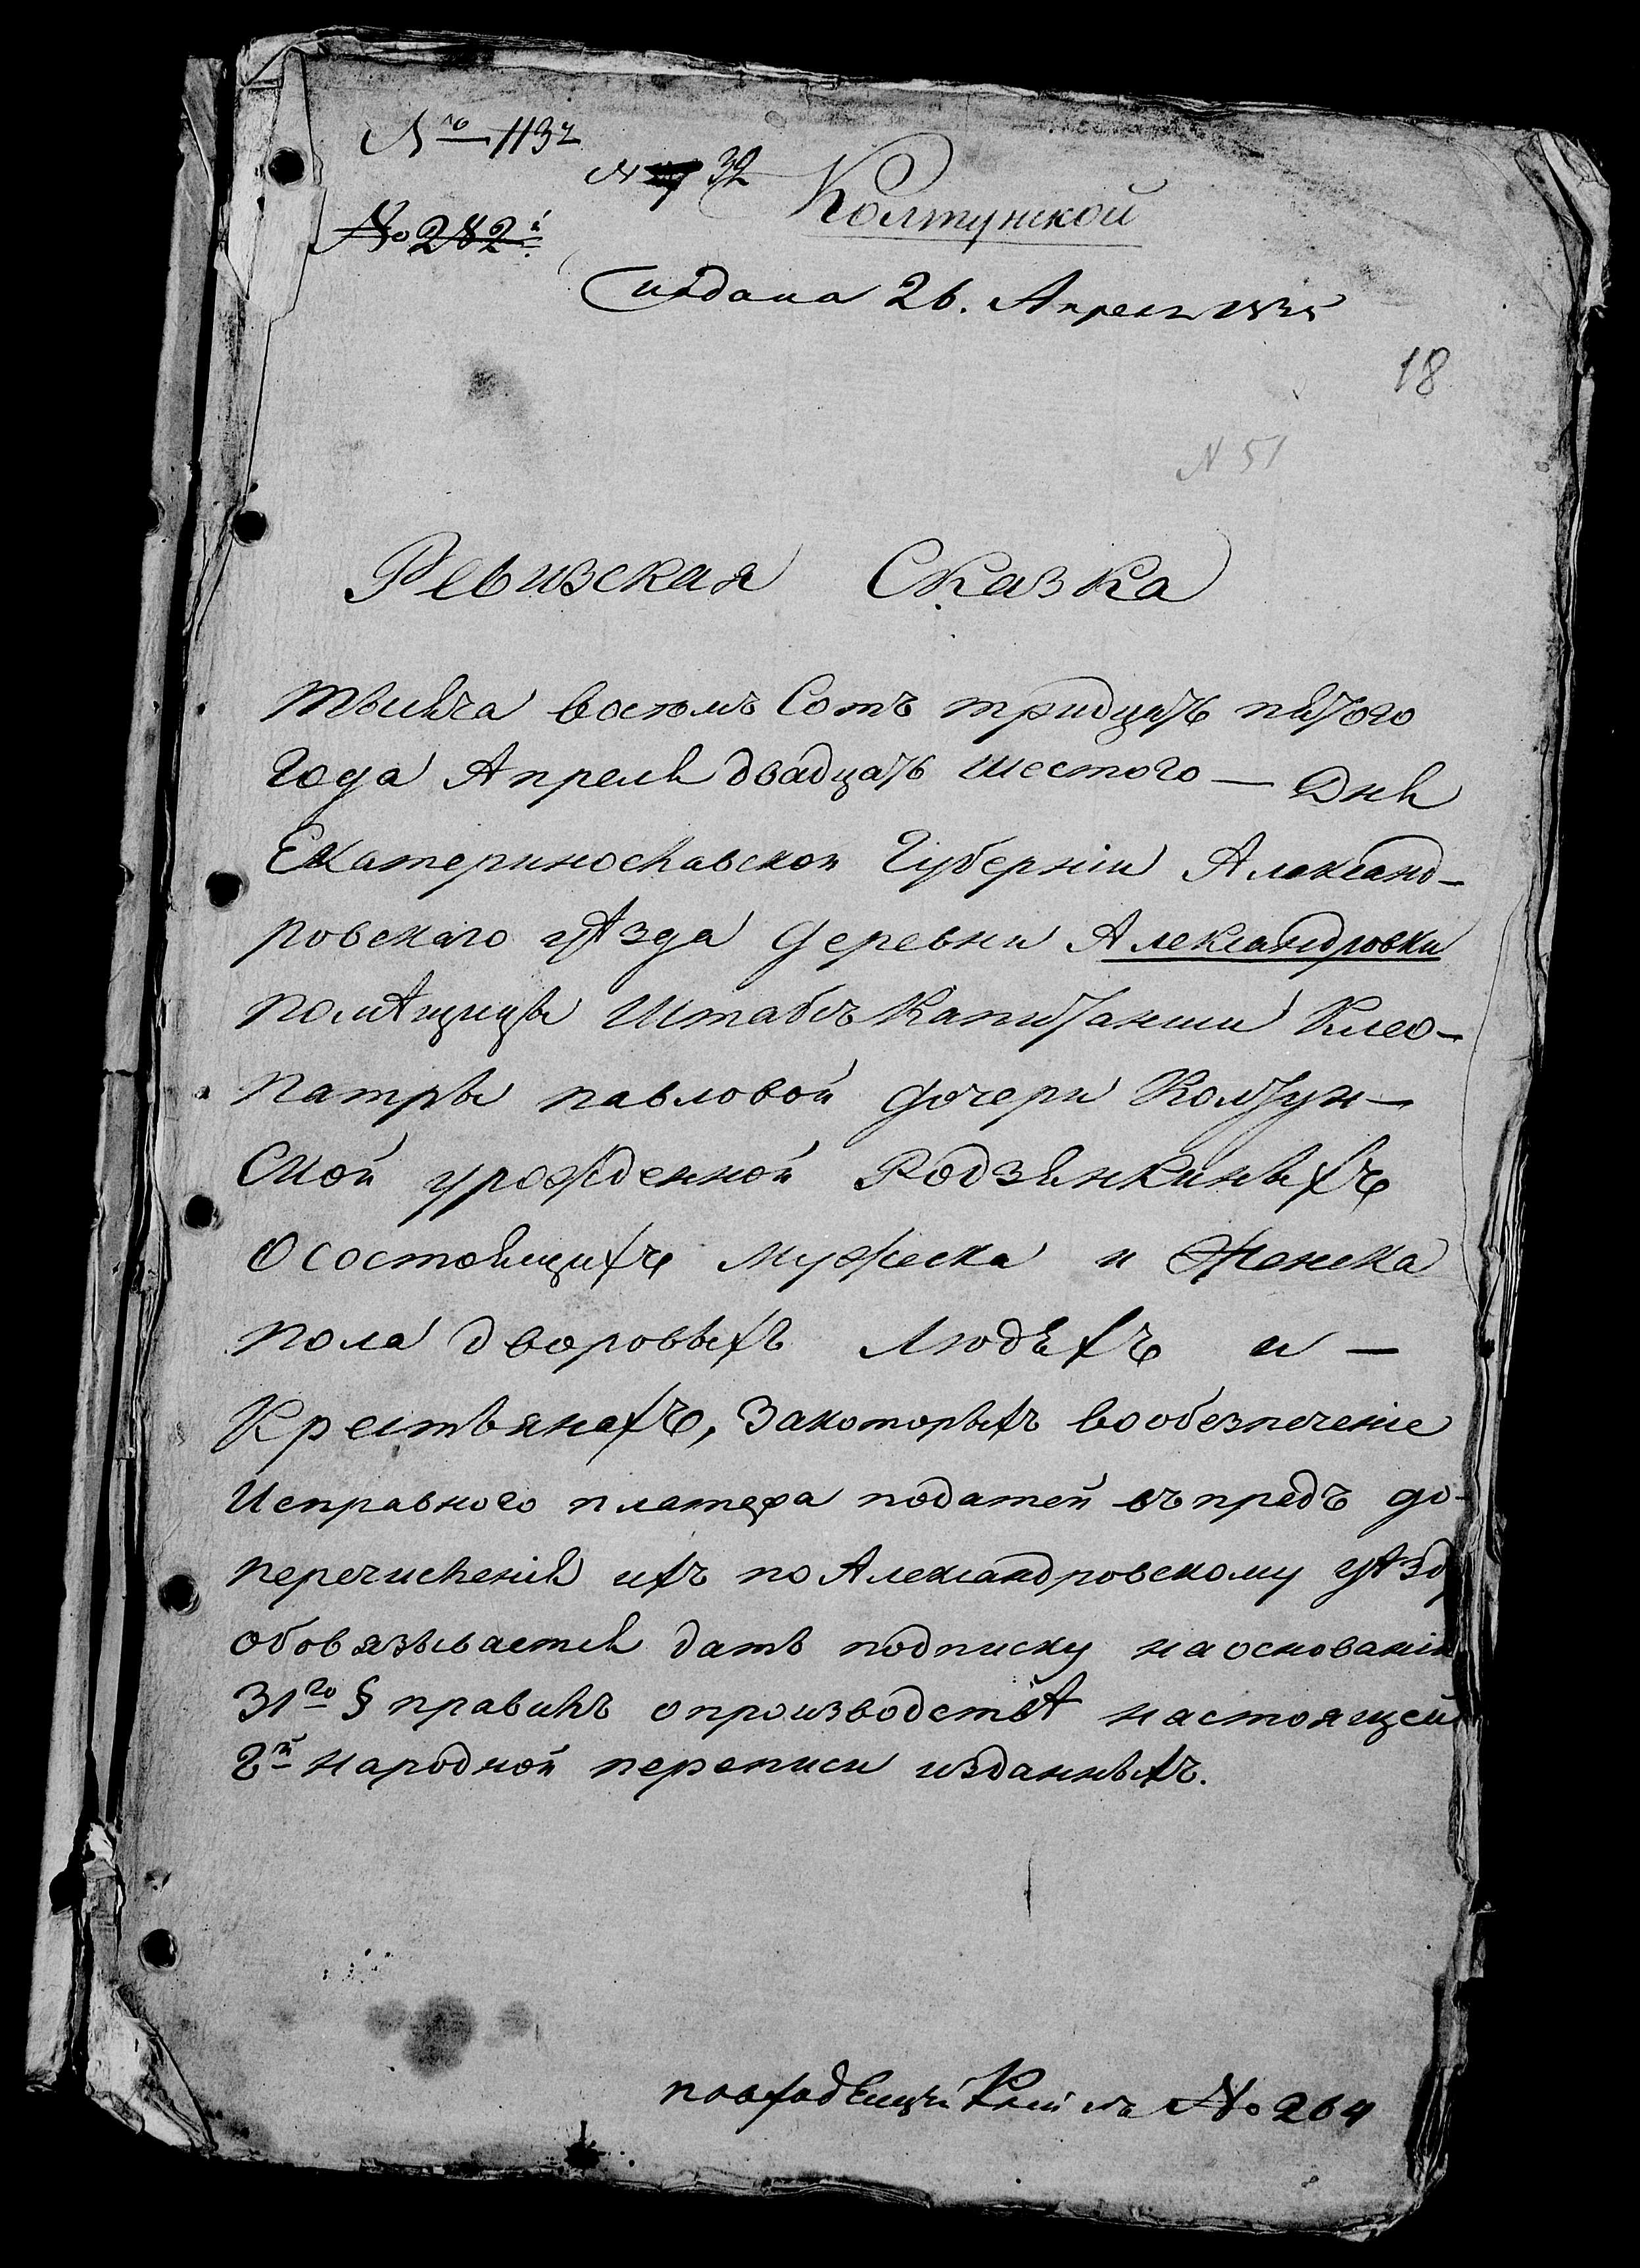 № 1132
№ 32
Колтунской
№ 282
Подана 26. Апреля 1835
18
N 51
Ревизская Сказка
тысяча восемь Сотъ тридцать пятого
Года Апреля двадцать шестого — Дня
Екатеринославской Губерніи Александ-
ровскаго уѣзда деревни Александровки
помѣщицы Штабсъ Капитанши Клео-
патры павловой дочери Колтун-
Ской урожденной Родзянкиныхъ
О состоящихъ мужеска и Женска
пола дворовыхъ Людѣхъ и —
Крестьянахъ, За которыхъ во обезпеченіе
Исправного платежа податей въ предь до
перечисленія ихъ по Александровскому уѣзду
обовязывается дать подписку на основаніи
31го § правилъ о производствѣ настоящей
8й народной переписи изданныхъ.
№ 264